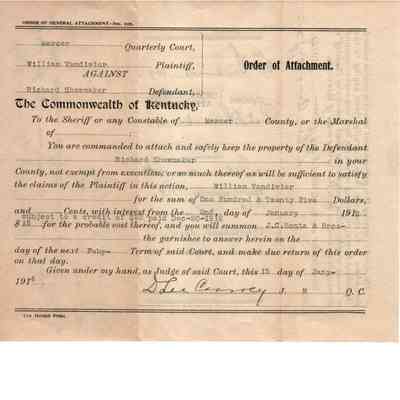 ORDER OF GENERAL ATTACHMENT
Mercer Quarterly Court,
William Vandivier Plaintiff,
AGAINST
Order of Attachment.
Richard Shewmaker Defendant,
The Commonwealth of Kentucky,
To the Sheriff or any Constable of Mercer County, or the Marshal
of ;
You are commanded to attach and safely keep the property of the Defendant
Richard Shewmaker in your
County, not exempt from execution, or so much thereof as will be sufficient to satisfy
the claims of the Plaintiff in this action, William Vandivier
for the sum of One Hundred & Twenty Five Dollars,
and Cents, with interest from the 2nd day of January 191
subject to a credit of paid Dec-20-191
$ for the probable cost thereof, and you will summon J.C. & Bros-
the garnishee to answer herein on the
day of the next Feby- Term of said Court, and make due return of this order
on that day.
Given under my hand, as Judge of said Court, this 15 day of Jany-
191
D Lee J. M Q. C.